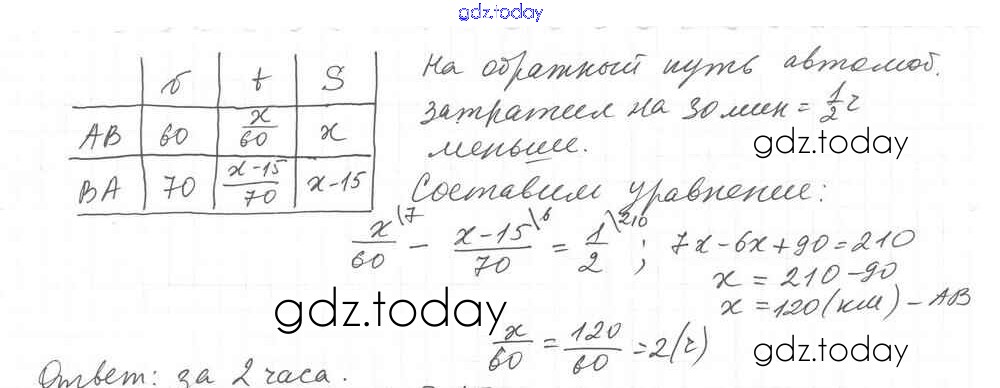 gdz.today
v t S
AB 60 x/60 x
BA 70 x-15/70 x-15
На обратный путь автомоб.
затратил на 30 мин = 1/2 ч
меньше.
gdz.today
Составим уравнение:
x/60 \7 - x-15/70 \6 = 1/2 \210 ; 7x-6x+90=210
x = 210-90
x = 120 (км) - AB
gdz.today
x/60 = 120/60 = 2 (ч)
gdz.today
Ответ: за 2 часа.